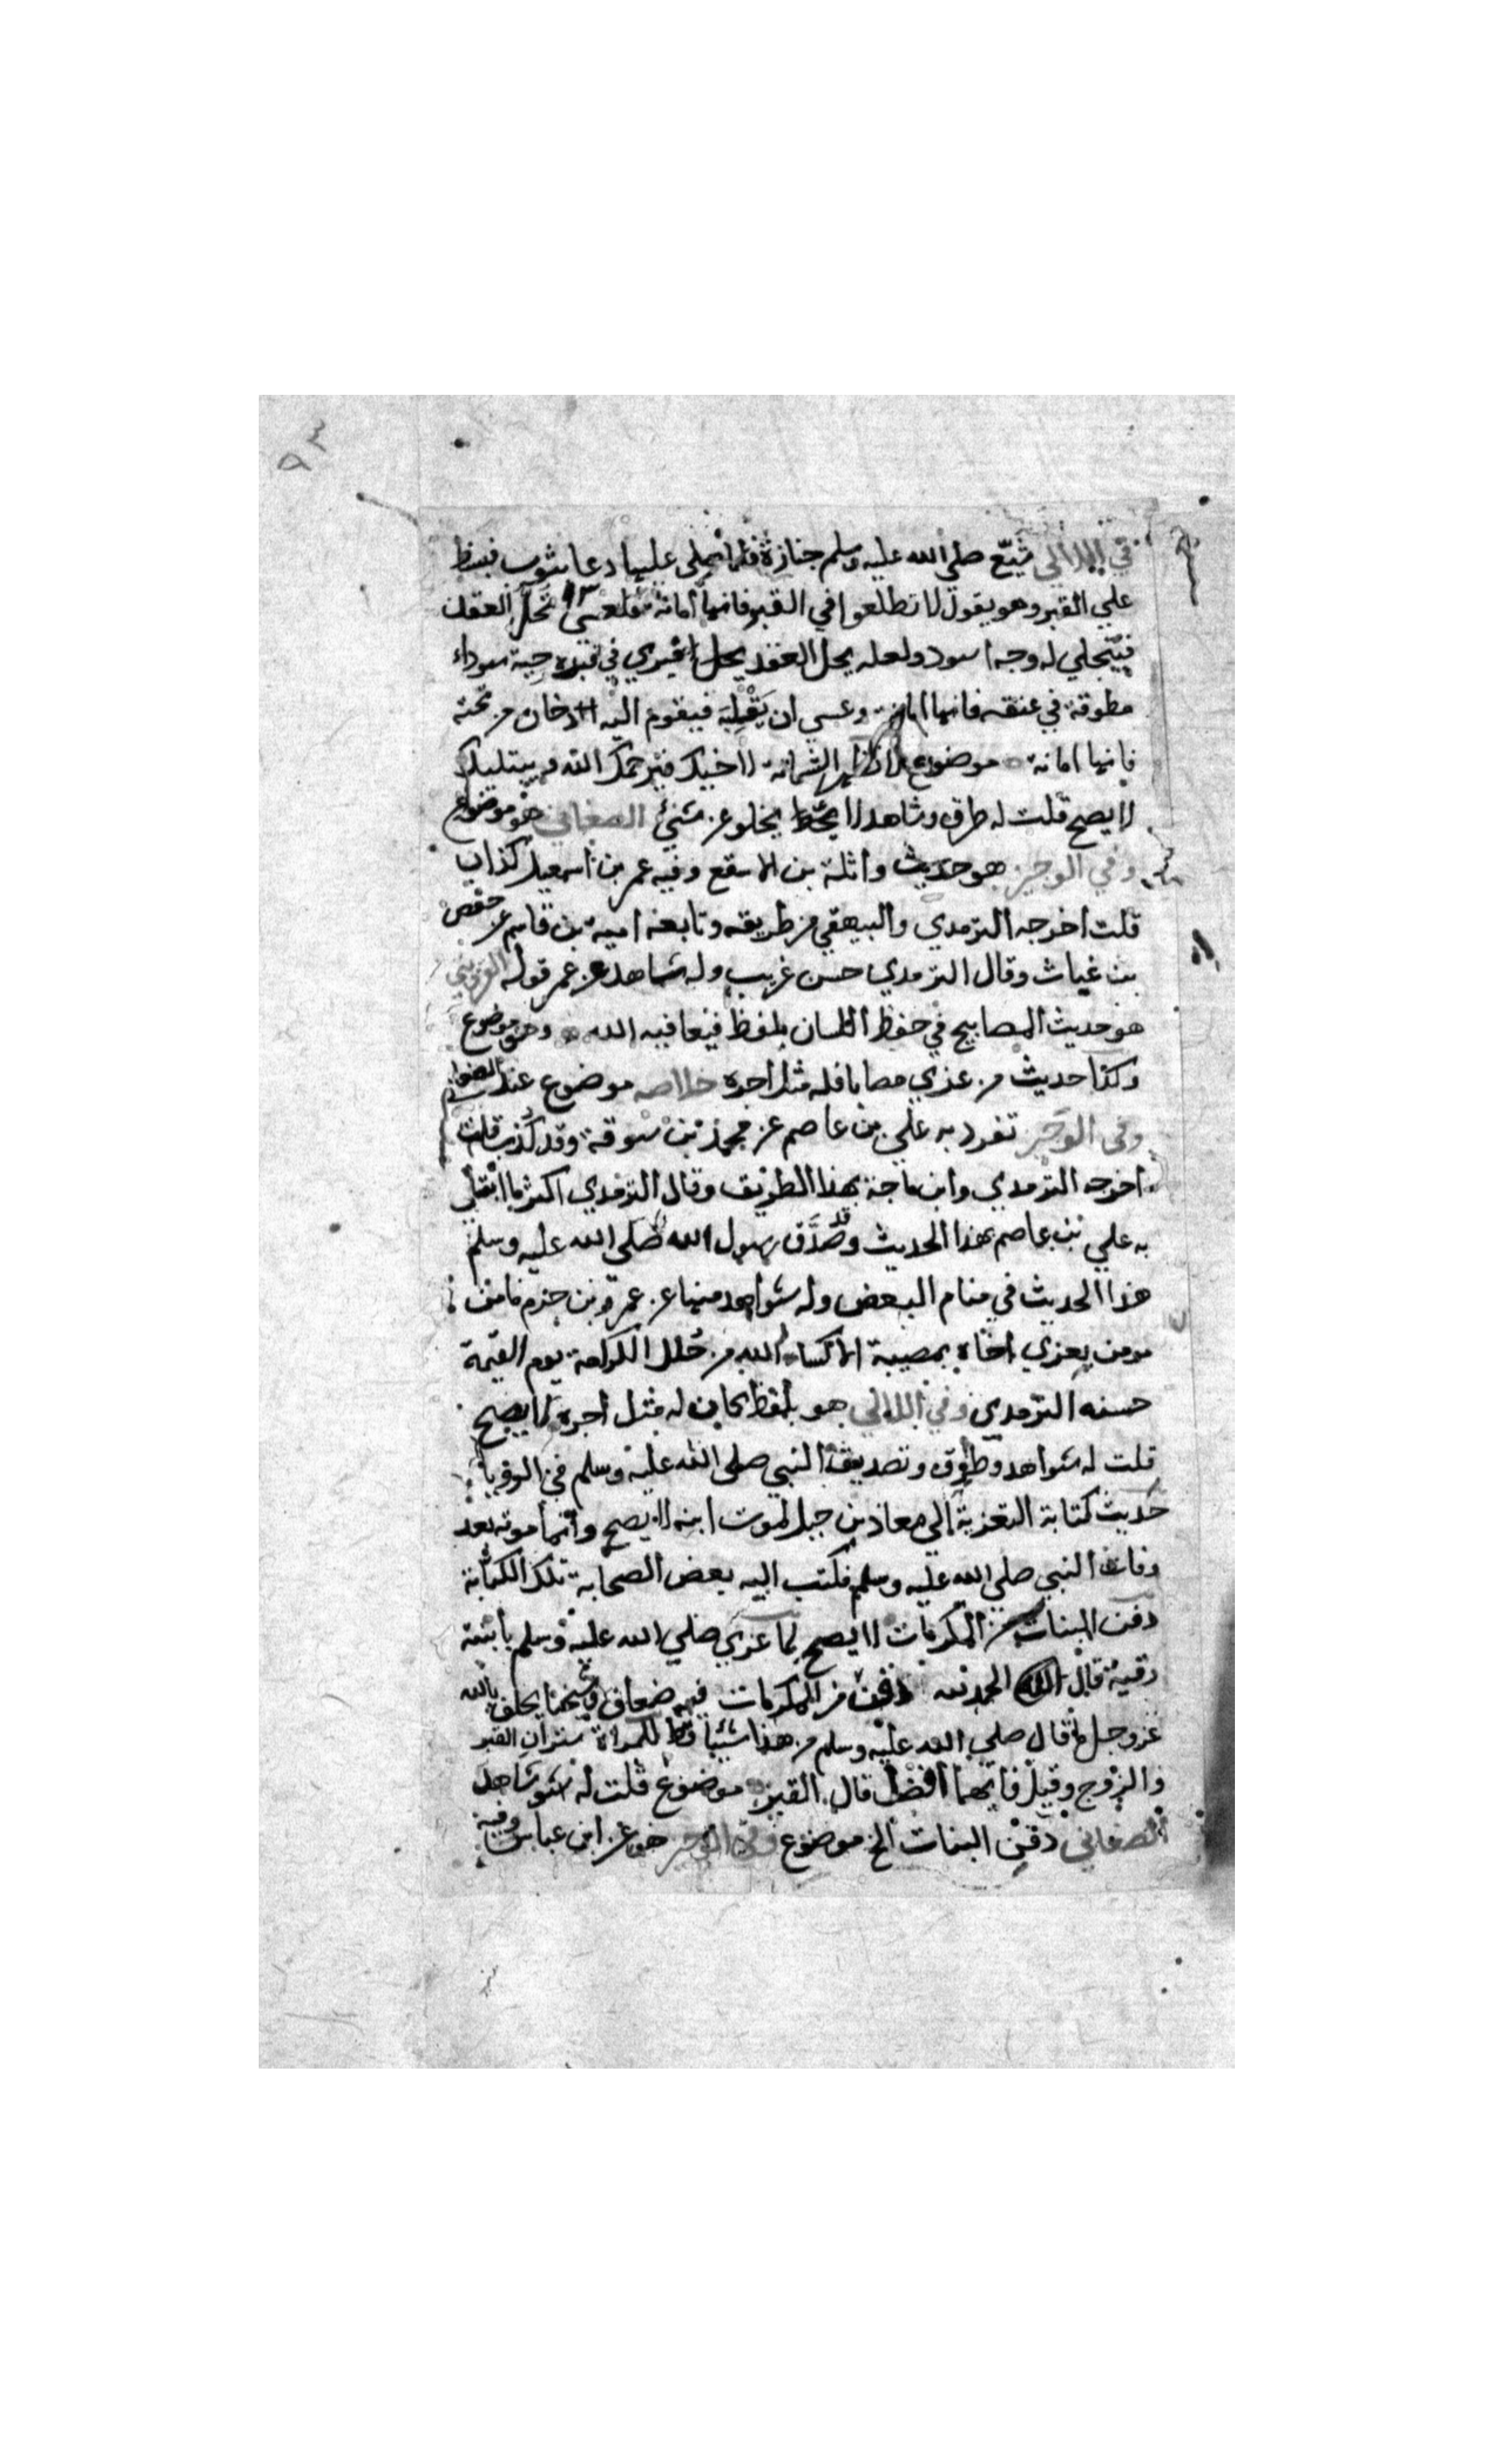 ٩٣
في اللآلي شيّع صلي الله عليه وسلم جنازة فلما صلي عليها دعا بثوب فبسط
علي القبر وهو يقول لا تطلعوا في القبر فانها امانة فلعسى تحل العقد
فيتجلي له وجه اسود ولعله يحل العقد فيري في قبره حية سوداء
مطوقة في عنقه فانها امانة وعسي ان يقلبه فيفوم اليه دخان من تحته
فانها امانة موضوع لا تظهر الشماتة لاخيك فيرحمك الله ويبتليك
لا يصح قلت له طرق وشاهد لا يخلو عن شئ الصغاني هو موضوع
وفي الوجيز هو حديث واثلة بن الاسقع وفيه عمر بن اسمعيل كذاب
قلت اخرجه الترمدي والبيهقي من طريقه وتابعه امية بن قاسم عن حفص
بن غياث وقال الترمدي حسن غريب وله شاهد عن عمر قوله القزويني
هو حديث المصابيح في حفظ اللسان بلفظ فيعافيه الله وهو موضوع
وكذا حديث من عزي مصابا فله مثل اجره خلاصه موضوع عند الصغاني
وفي الوجيز تفرد به علي بن عاصم عن محمد بن سوقة وقد كذب قلت
اخرجه الترمدي وابن ماجة بهذا الطريق وقال الترمدي اكثر ما ابتلي
به علي بن عاصم بهذا الحديث وقد صدّق رسول الله صلي الله عليه وسلم
هذا الحديث في منام البعض وله شواهد منها عن عمرو بن حزم ما من
مومن يعزي اخاه بمصيبة الا كساه الله من حلل الكرامة يوم القيمة
حسنه الترمدي وفي اللآلي هو بلفظ كان له مثل اجره لا يصح
قلت له شواهد وطرق وتصديق النبي صلي الله عليه وسلم في الرويا
حديث كتابة التعزية إلي معاذ بن جبل لموت ابنه لا يصح وانما موته بعد
وفات النبي صلي الله عليه وسلم فكتب اليه بعض الصحابة تلك الكتابة
دفن البنات من المكرمات لا يصح لما عزي صلي الله عليه وسلم بابنته
رقية قال الحمد لله دفن من المكرمات فيه ضعاف وشيخنا يحلف بالله
عز وجل ما قال صلي الله عليه وسلم من هذا شيئا قط للمراة ستران القبر
والزوج وقيل فايهما افضل قال القبر موضوع قلت له شواهد
الصغاني دفن البنات الخ موضوع وفي الوجيز هو عن ابن عباس وفيه